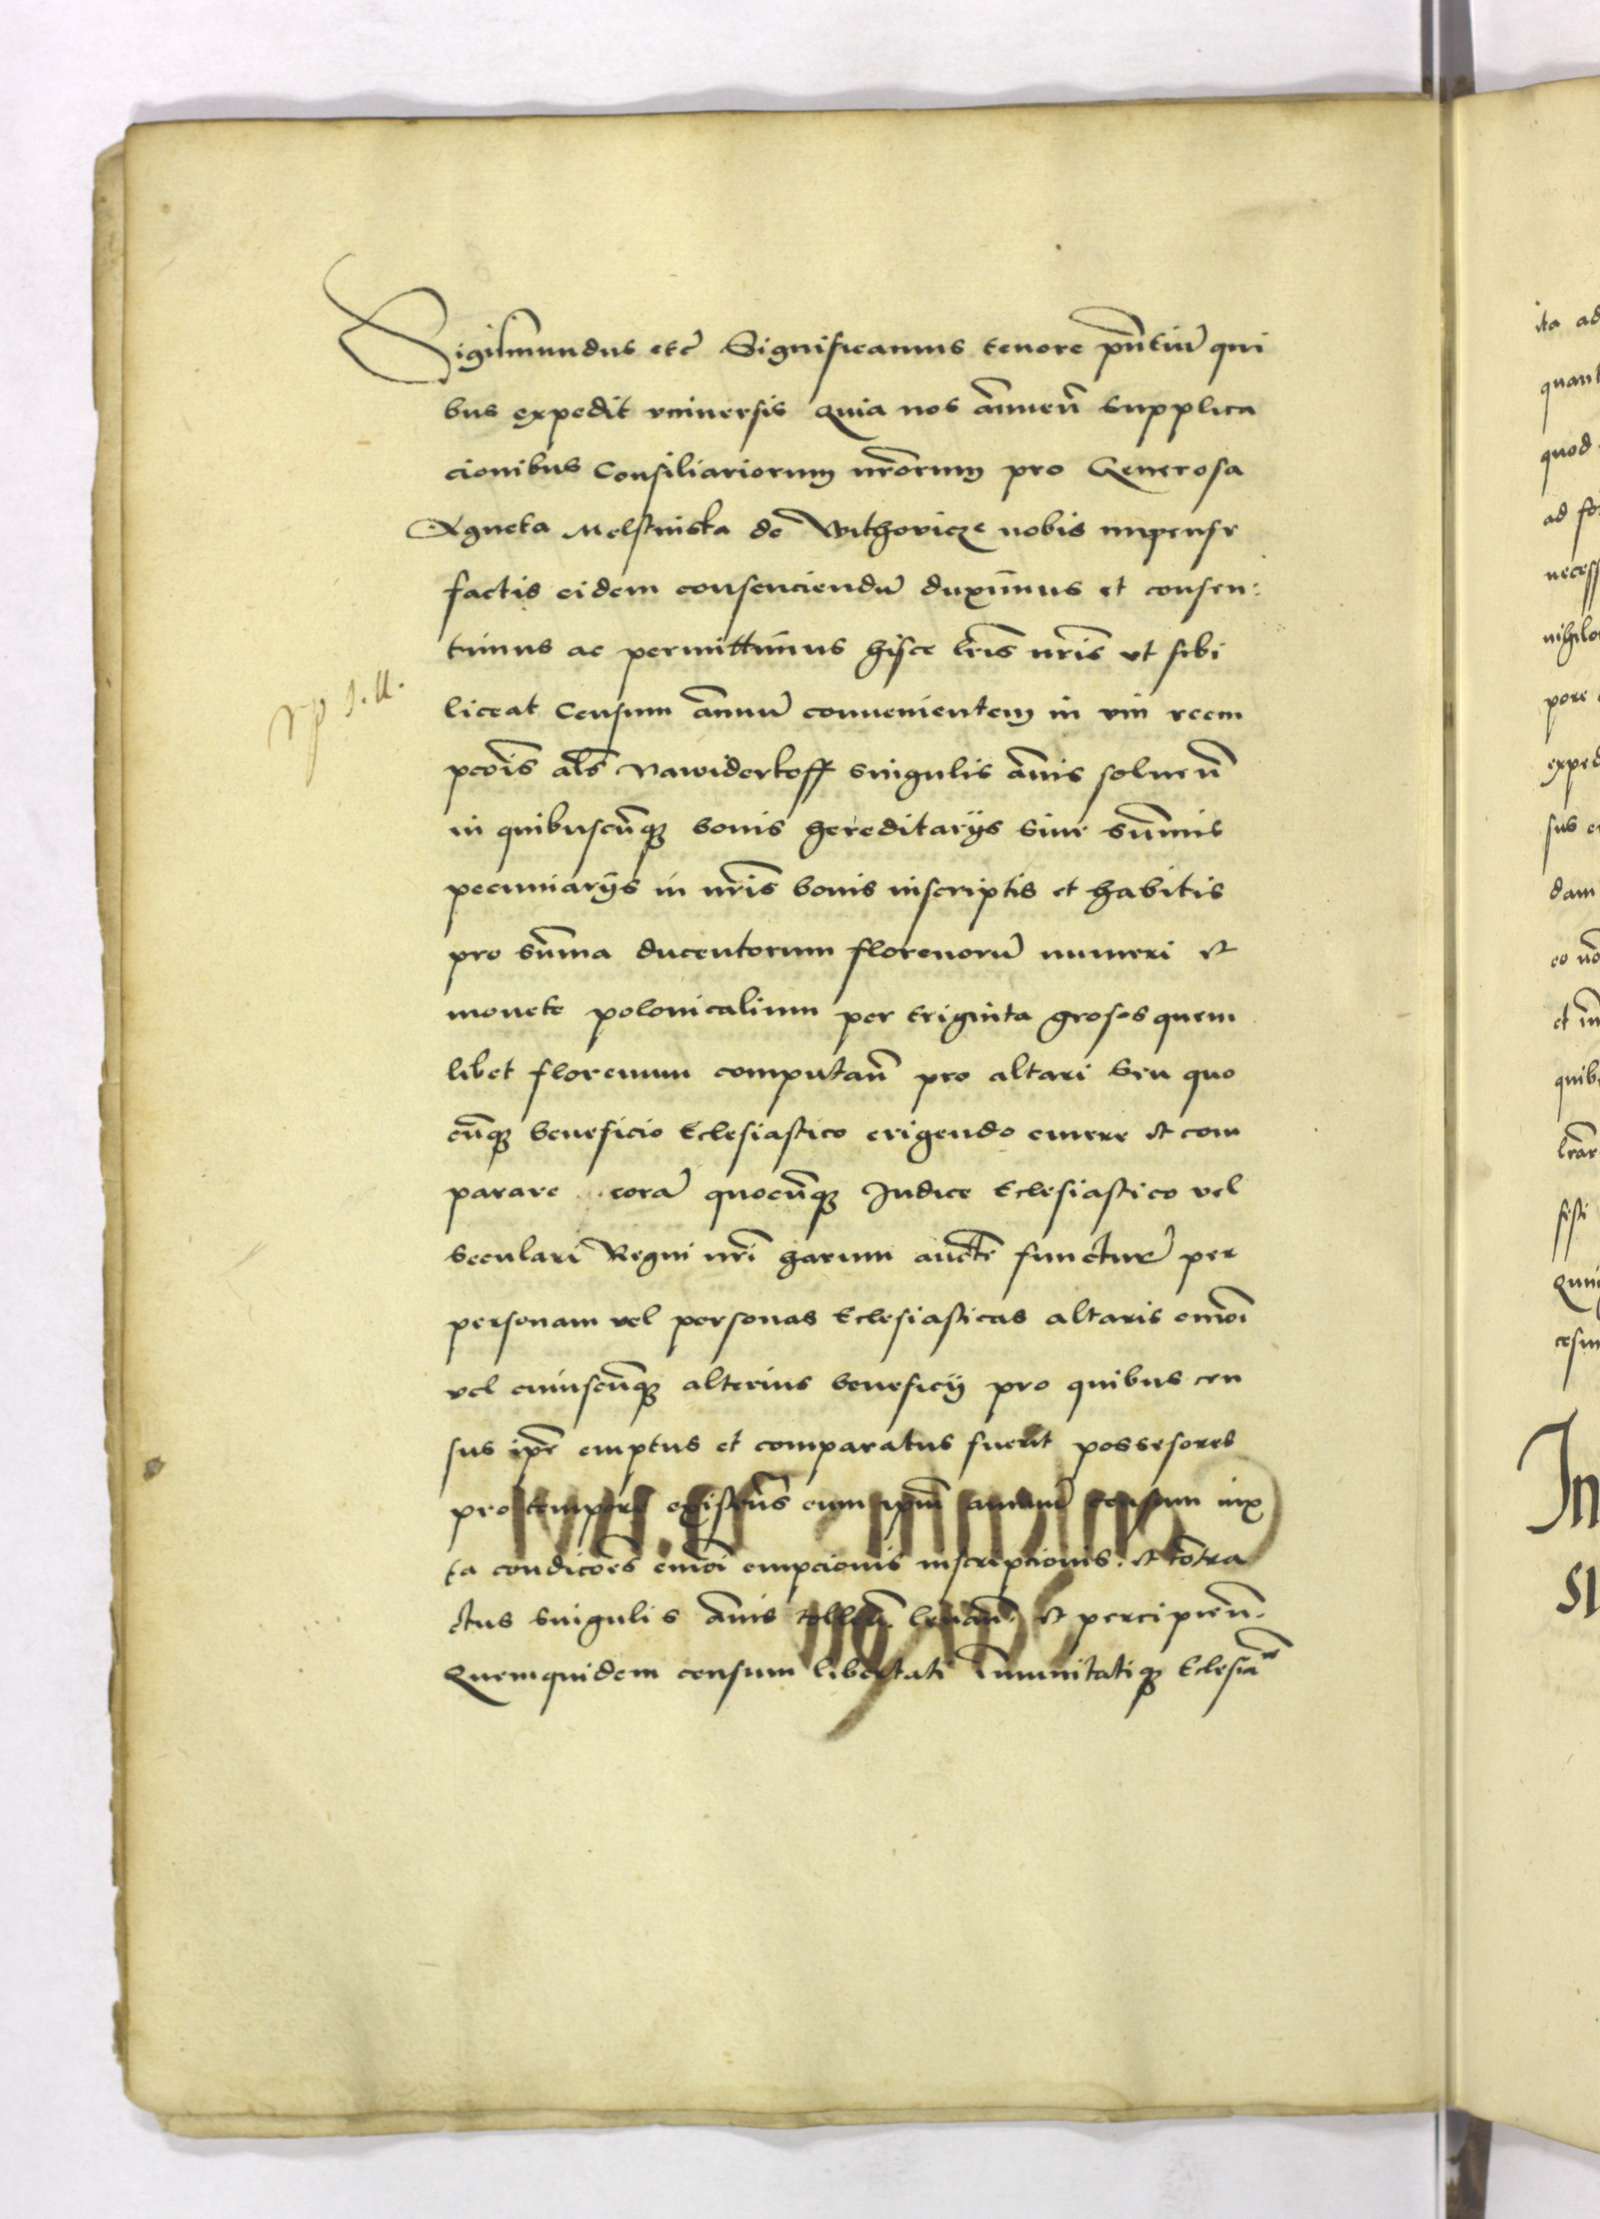 Sigismundus etc̃ Significamus tenore pñtiũ qui
bus expedit vniuersis Quia nos ãnuen̄ supplica
cionibus Consiliariorum nrõrum pro Generosa
Agneta Melstinska de Withovicze nobis impense
factis eidem consenciendũ duximus et consen:
timus ac permittimus hisce lr̃is nr̃is vt sibi
liceat Censum ãnuũ conuenientem in vim reem
pcõis al̃s Nawiderkoff singulis ãnis soluen̄
in quibuscũqꝫ bonis hereditarÿs siue sũmis
pecuniarÿs in nr̃is bonis inscriptis et habitis
pro sũma ducentorum florenorũ numeri et
monete polonicalium per triginta grosos quem
libet florenum computan̄ pro altari seu quo
cũqꝫ beneficio Eclesiastico erigendo emere et com
parare corã quocũqꝫ Iudice Eclesiastico vel
seculari Regni nr̃i harum auctẽ functurẽ per
personam vel personas Eclesiasticas altaris em̃oi
vel cuiuscũqꝫ alterius beneficÿ pro quibus cen
sus ip̃e emptus et comparatus fuerit possesores
pro tempore existeñs eum ip̃m annuũ censum iux
ta condicões em̃oi empcionis inscripcionis. et cõtra
ctus singulis ãnis tollen̄. leuan̄. et percipien̄.
Quemquidem censum libertati im̃unitatiqꝫ Eclesiãe
ita ad
quant
quod
ad
necess
nihilo
pore
exped
sus
dam
quib
In